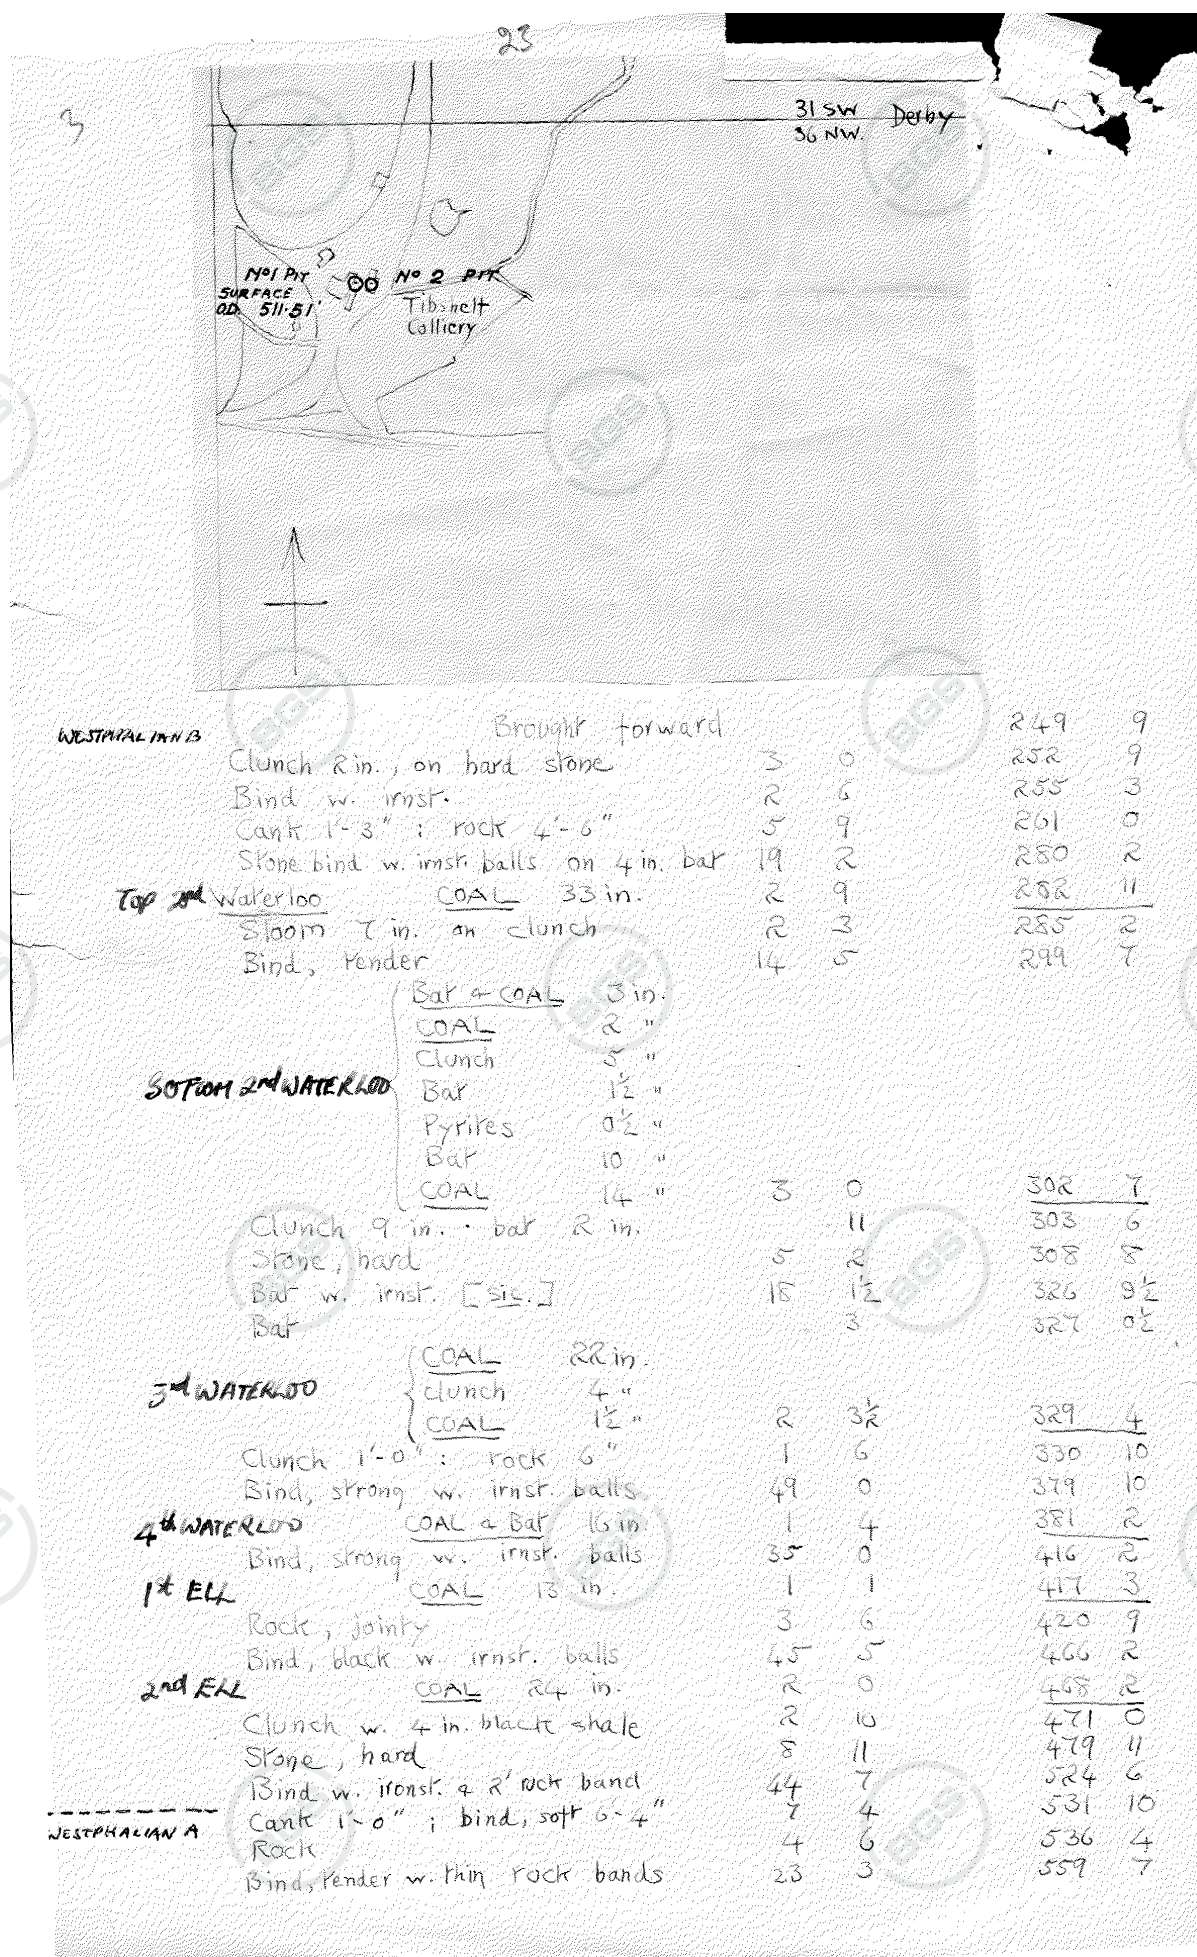 23
3
31 SW Derby
36 NW.
No 1 PIT
SURFACE
O.D. 511.51'
No 2 PIT
Tibshelf
Colliery
Brought forward 249 9
WESTPHALIAN B
Clunch 2 in., on hard stone 3 0 252 9
Bind w. irnst. 2 6 255 3
Cank 1'-3" : rock 4'-6" 5 9 261 0
Stone bind w. irnst. balls on 4 in. bat 19 2 280 2
Top 2nd Waterloo COAL 33 in. 2 9 282 11
Sloom 7 in. on clunch 2 3 285 2
Bind, tender 14 5 299 7
Bat & COAL 3 in.
COAL 2 "
Clunch 5 "
BOTTOM 2nd WATERLOO Bat 1½ "
Pyrites 0½ "
Bat 10 "
COAL 14 " 3 0 302 7
Clunch 9 in. · bat 2 in. 11 303 6
Stone, hard 5 2 308 8
Bat w. irnst. [sic.] 18 1½ 326 9½
Bat 3 327 0½
COAL 22 in.
3rd WATERLOO clunch 4 "
COAL 1½ " 2 3½ 329 4
Clunch 1'-0" : rock 6" 1 6 330 10
Bind, strong w. irnst. balls 49 0 379 10
4th WATERLOO COAL & Bat 16 in 1 4 381 2
Bind, strong w. irnst. balls 35 0 416 2
1st ELL COAL 13 in. 1 1 417 3
Rock, jointy 3 6 420 9
Bind, black w. irnst. balls 45 5 466 2
2nd ELL COAL 24 in. 2 0 468 2
Clunch w. 4 in. black shale 2 10 471 0
Stone, hard 8 11 479 11
Bind w. ironst. & 2' rock band 44 7 524 6
Cank 1'-0" ; bind, soft 6-4" 7 4 531 10
WESTPHALIAN A
Rock 4 6 536 4
Bind, tender w. thin rock bands 23 3 559 7
BGS